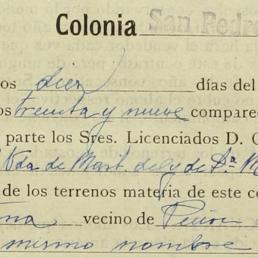 Colonia San Pedro
os diez días del
os treinta y nueve compare
parte los Sres. Licenciados D. C
Vda de Mart
de los terrenos materia de este co
vecino de
mismo nombre